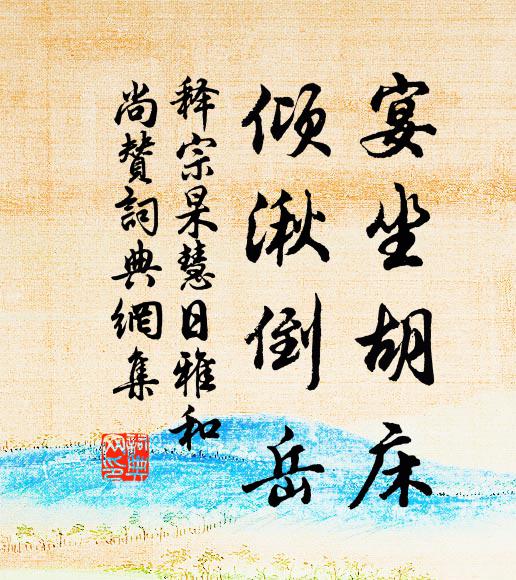 宴坐胡床
倾湫倒岳
释宗杲慧日雅和
尚赞词典网集